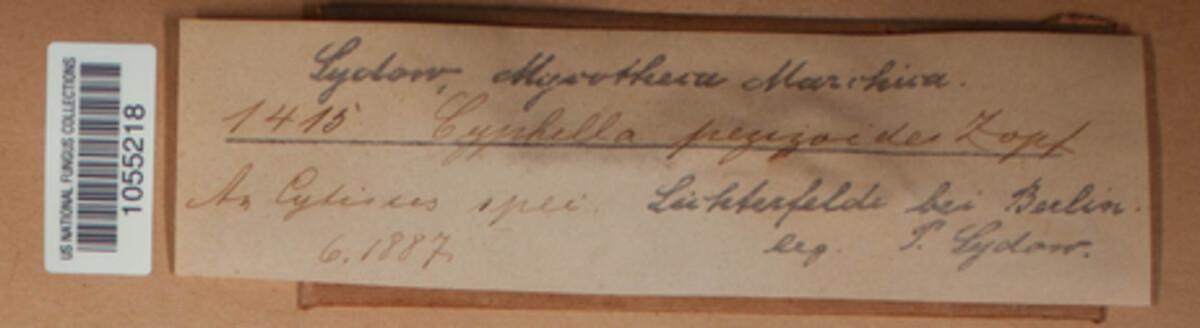 US NATIONAL FUNGUS COLLECTIONS
1055218
Sydow, Mycotheca Marchica.
1415 Cyphella pezizoides Zopf
An Cytisus spei. Lichterfelde bei Berlin.
6.1887. leg. P. Sydow.